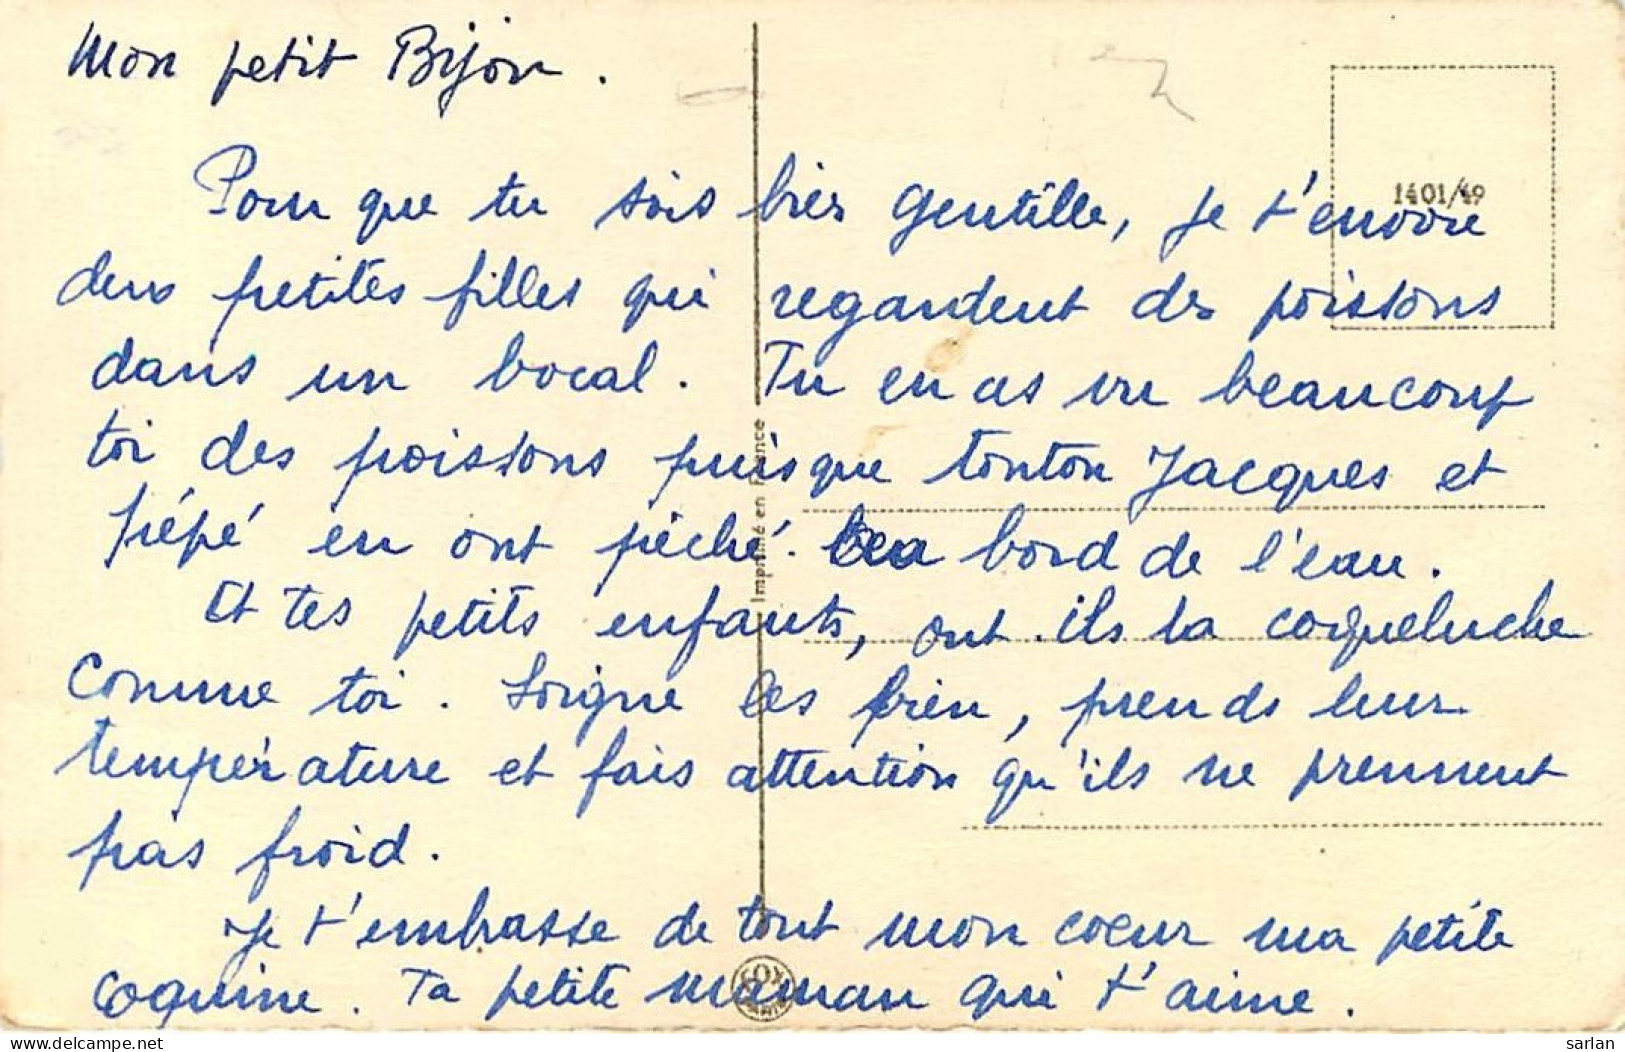 Mon petit Bijou.
1401/49
Pour que tu sois bien gentille, je t'envoie
deux petites filles qui regardent des poissons
dans un bocal. Tu en as vu beaucoup
toi des poissons puisque tonton Jacques et
pépé en ont pêché. bord de l'eau.
Et tes petits enfants, ont-ils la coqueluche
comme toi. Soigne les bien, prends leur
température et fais attention qu'ils ne prennent
pas froid.
Je t'embrasse de tout mon coeur ma petite
coquine. Ta petite maman qui t'aime.
Imprimé en France
delcampe.net
sarlan